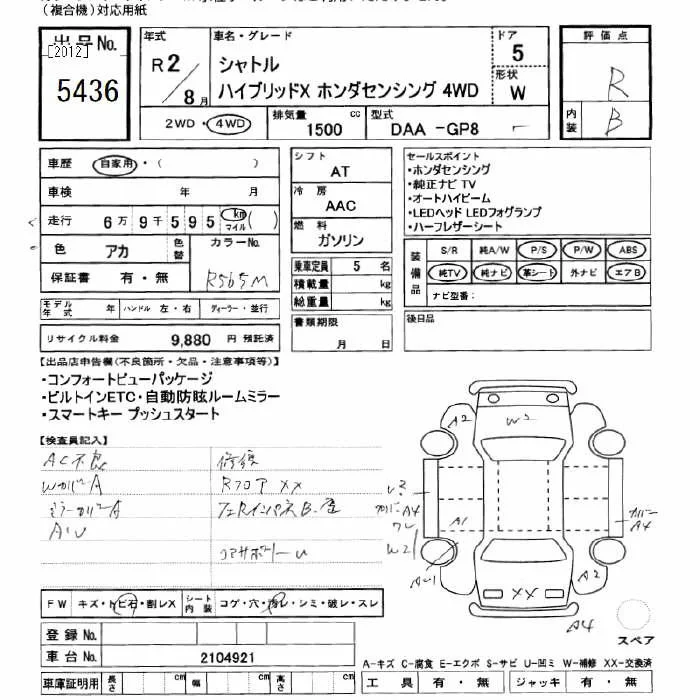 （複合機）対応用紙
出品No.
[2012]
5436
年式
R2/8月
車名・グレード
シャトル
ハイブリッドX ホンダセンシング 4WD
ドア
5
形状
W
評価点
R
内装
B
2WD・4WD
排気量
1500 cc
型式
DAA -GP8
車歴 自家用・（ ）
車検 年 月
走行 6万9千595 km マイル ( )
色 アカ 色替 カラーNo. R565M
保証書 有・無
モデル年式 年 ハンドル 左・右 ディーラー・並行
リサイクル料金 9,880 円 預託済
シフト
AT
冷房
AAC
燃料
ガソリン
乗車定員 5 名
積載量 kg
総重量 kg
書類期限
月 日
セールスポイント
・ホンダセンシング
・純正ナビ TV
・オートハイビーム
・LEDヘッド LEDフォグランプ
・ハーフレザーシート
装備品
S/R 純A/W P/S P/W ABS
純TV 純ナビ 革シート 外ナビ エアB
ナビ型番：
後日品
【出品店申告欄(不良箇所・欠品・注意事項等)】
・コンフォートビューパッケージ
・ビルトインETC・自動防眩ルームミラー
・スマートキー プッシュスタート
【検査員記入】
AC不良
WカバーA
ミラーカバーA
AU
修復
Rフロア XX
コアサポートU
A2
W2
A4
A1
W2
A2
XX
A4
A4
FW キズ・トビ石・割レX シート内装 コゲ・穴・汚レ・シミ・破レ・スレ
登録No.
車台No. 2104921
車庫証明用 長さ cm 幅 cm 高さ cm
スペア
A-キズ C-腐食 E-エクボ S-サビ U-凹ミ W-補修 XX-交換済
工具 有・無 ジャッキ 有・無